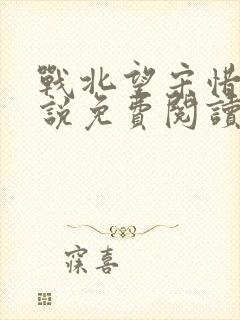 戰北望宋惜
說免費閱讀
寀喜